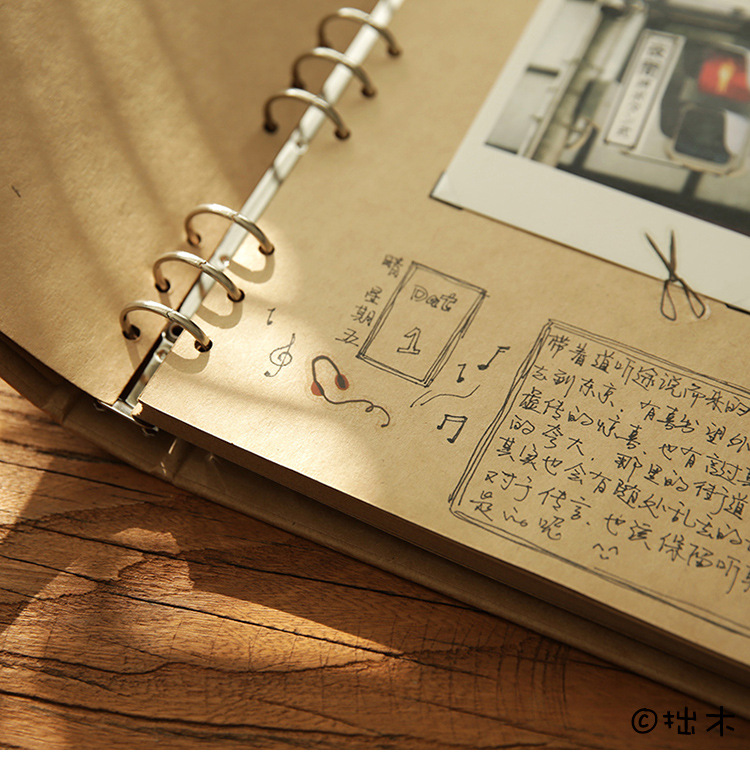 晴
星期五
Date
1
带着道听途说而来的
去到东京、有喜出望外
虚传的惊喜、也有言过其
的夸大、那里的街道
其实也会有随处乱丢的
对于传言、也该保留听
是心呢
©拙木